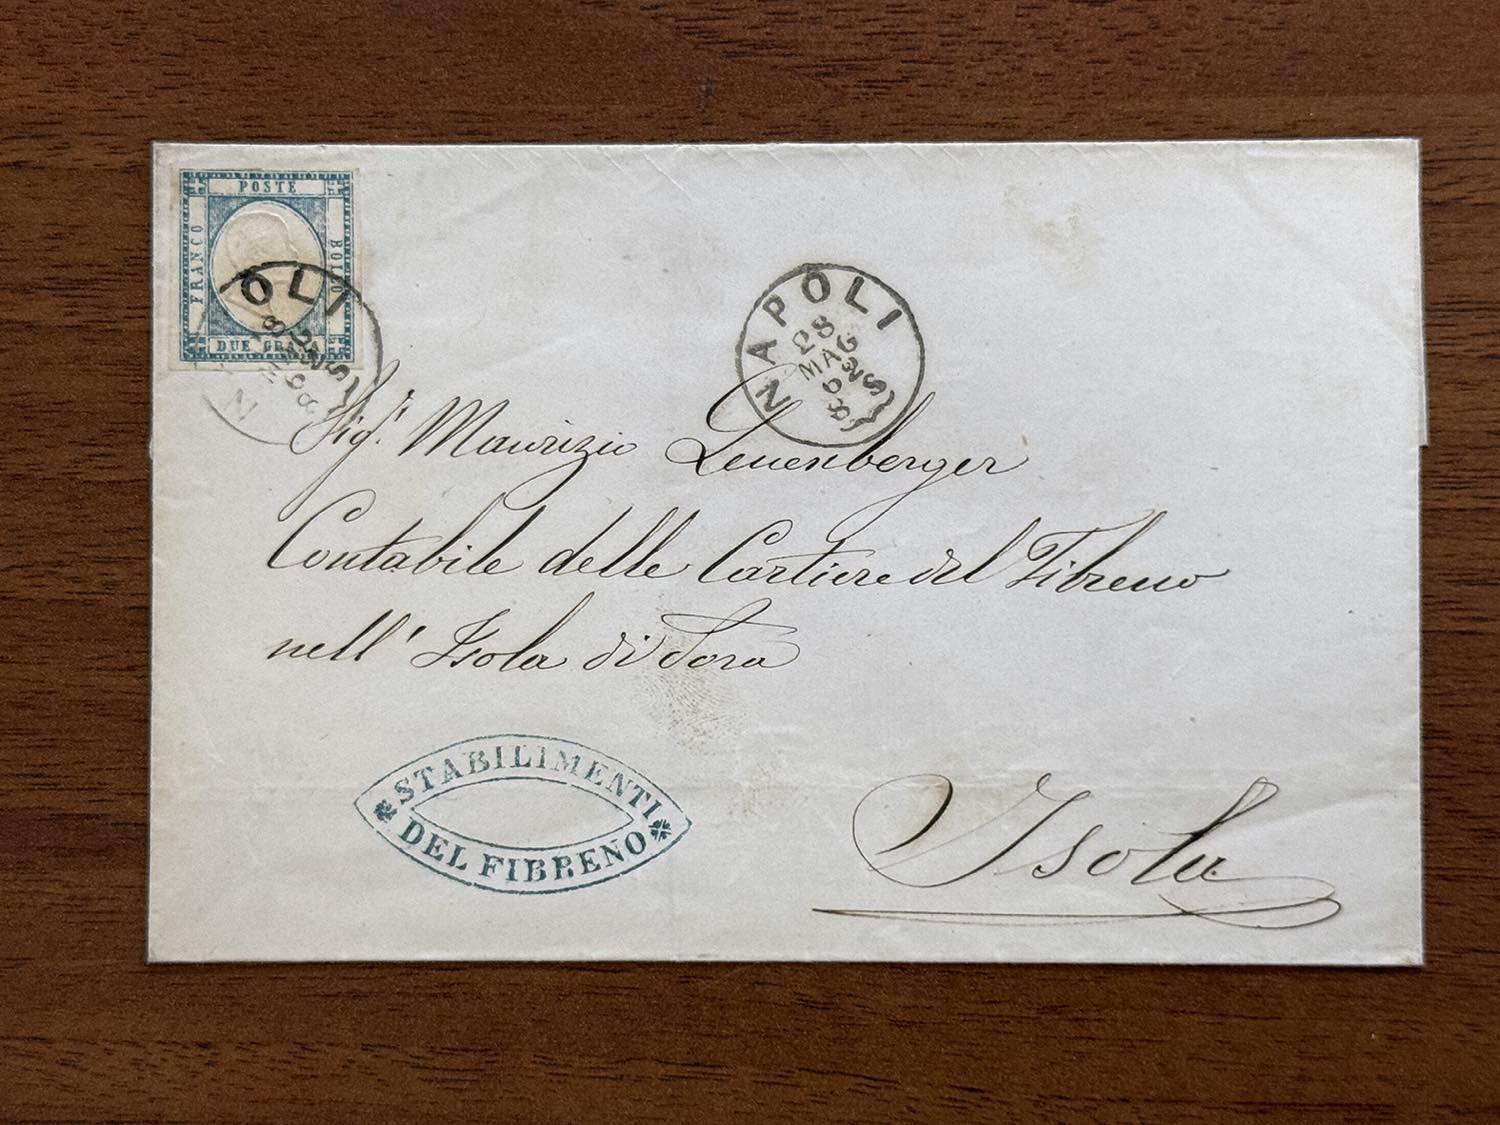 POSTE
FRANCO
BOLLO
DUE GRANA
OLI
N
28
MAG
68
2S
NAPOLI
28
MAG
68
2S
Sigr. Maurizio Leuenberger
Contabile delle Cartiere del Fibreno
nell' Isola di Sora
STABILIMENTI
DEL FIBRENO
Isola